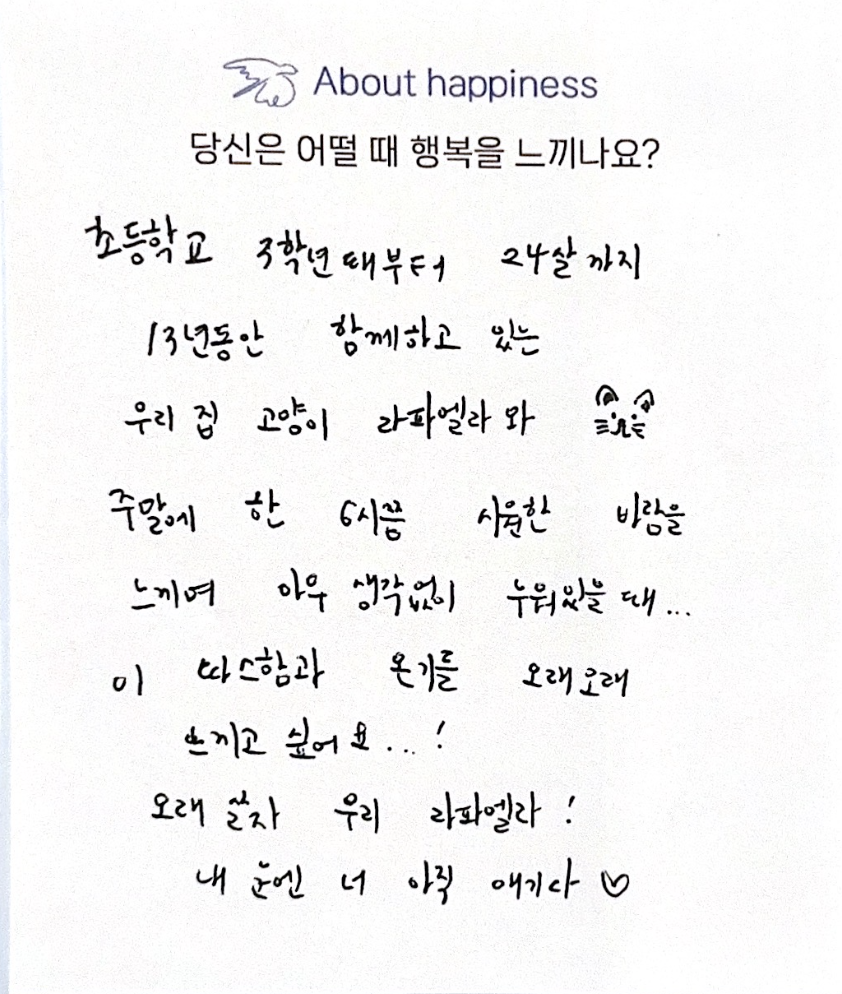 About happiness
당신은 어떨 때 행복을 느끼나요?
초등학교 3학년때부터 24살까지
13년동안 함께하고 있는
우리 집 고양이 라파엘라와
주말에 한 6시쯤 시원한 바람을
느끼며 아무 생각없이 누워있을 때...
이 따스함과 온기를 오래오래
느끼고 싶어요...!
오래 살자 우리 라파엘라!
내 눈엔 너 아직 애기다 ♡